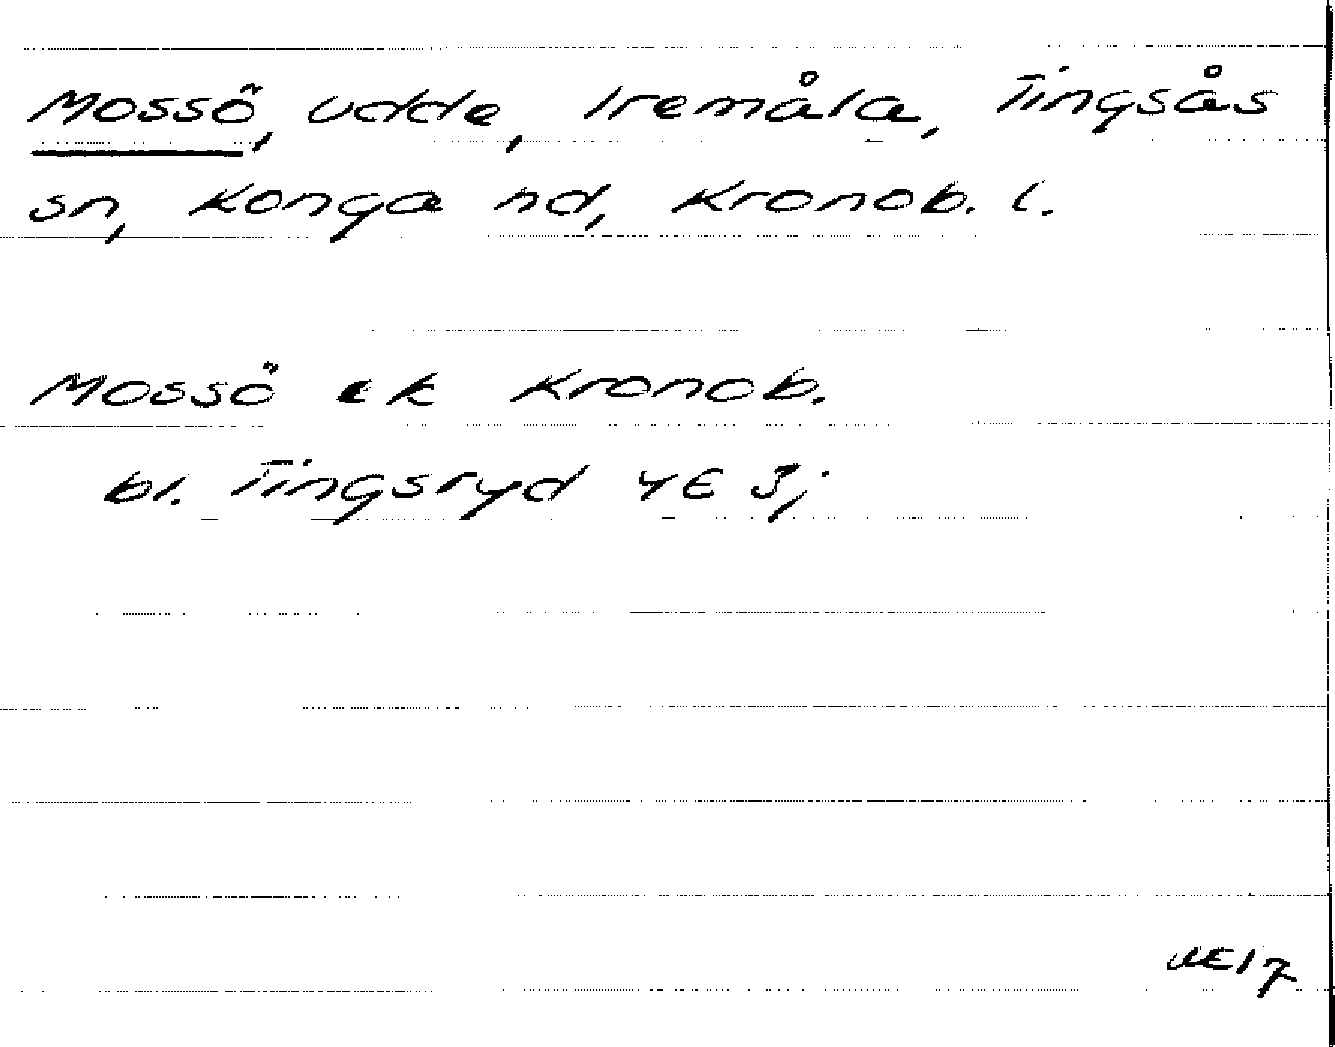 Mossö, udde, Iremåla, Tingsås
sn, Konga hd, Kronob. l.
Mossö ek Kronob.
bl. Tingsryd 4E 3j